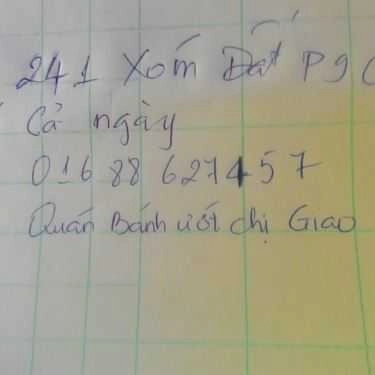 241 Xóm Đất P9
Cả ngày
01688 627457
Quán Bánh ướt chị Giao